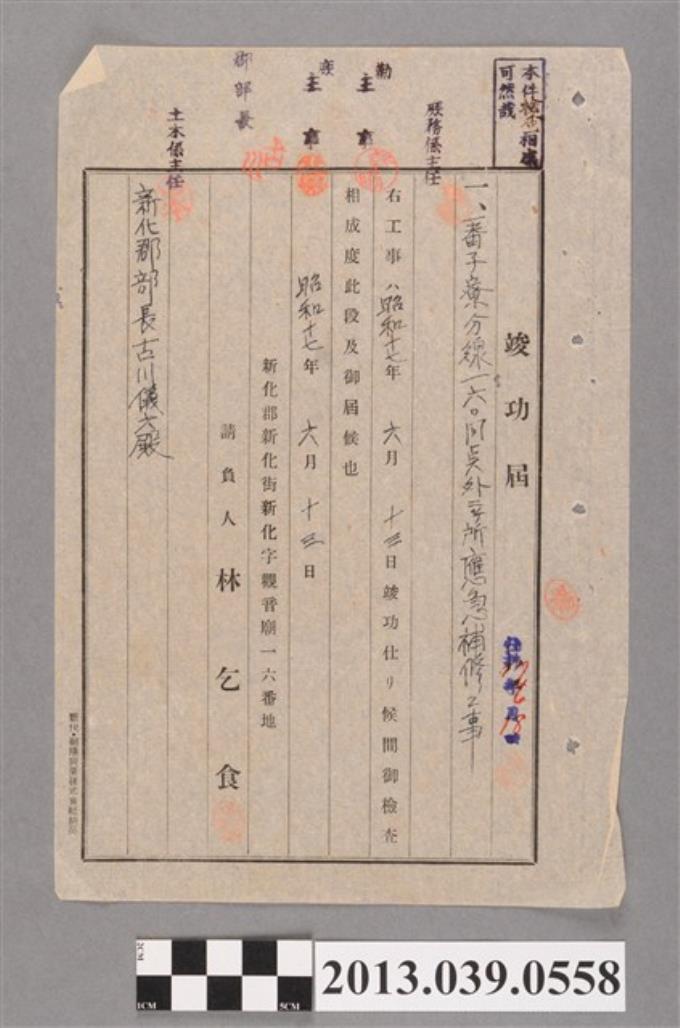 本件
可然哉
庶務係主任
勤主事
主事
郡部長
土木係主任
竣功届
一、番子寮分線一六〇間貞外
所應急補修工事
右工事ハ昭和十七年六月十三日竣功仕リ候間御檢査
相成度此段及御届候也
昭和十七年六月十三日
新化郡新化街新化字觀音廟一六番地
請負人 林乞食
新化郡部長古川儀六殿
2CM
1CM
5CM
2013.039.0558